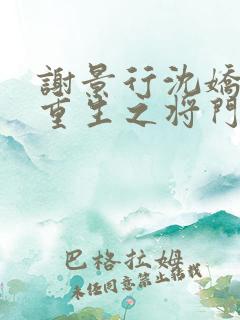 謝景行沈嬌
重生之将門
巴格拉姆
未经同意禁止转载